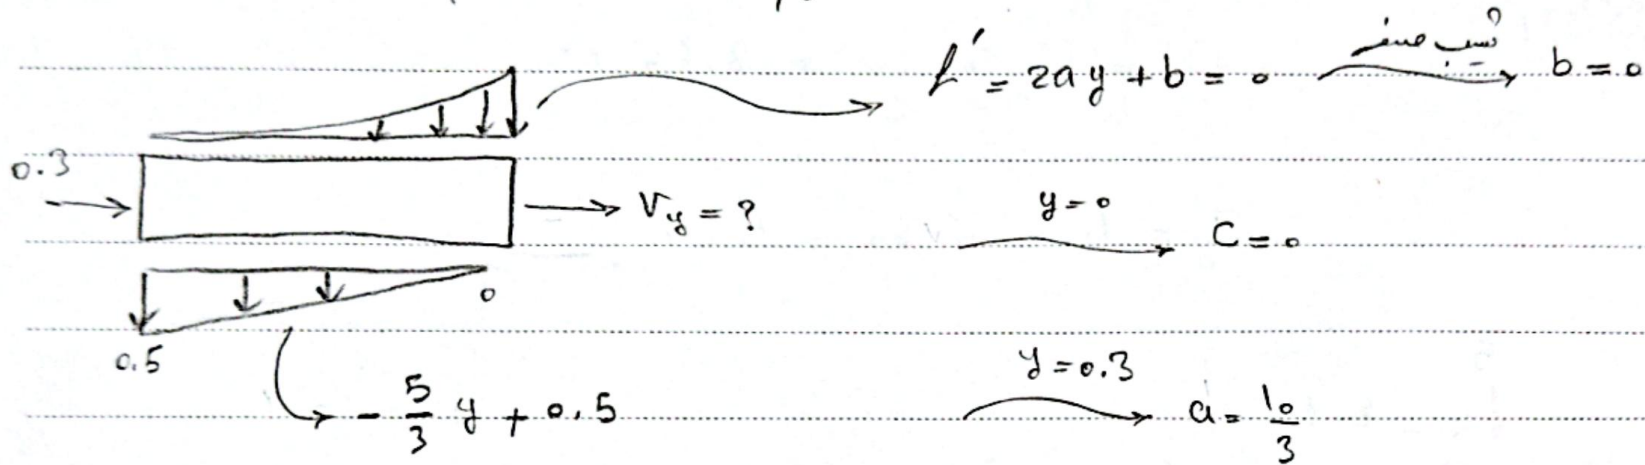 f' = 2ay + b = 0 شیب صفر b = 0
0.3
V_y = ?
y = 0
C = 0
0
0.5
y = 0.3
- 5/3 y + 0.5
a = 10/3